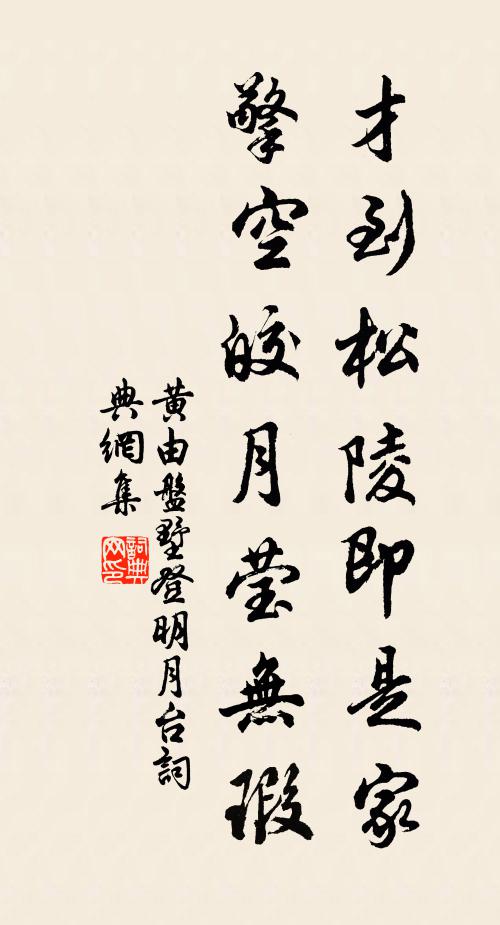 才到松陵即是家
擎空皎月莹無瑕
黄由盤墅登明月台詞
典網集
詞典网印